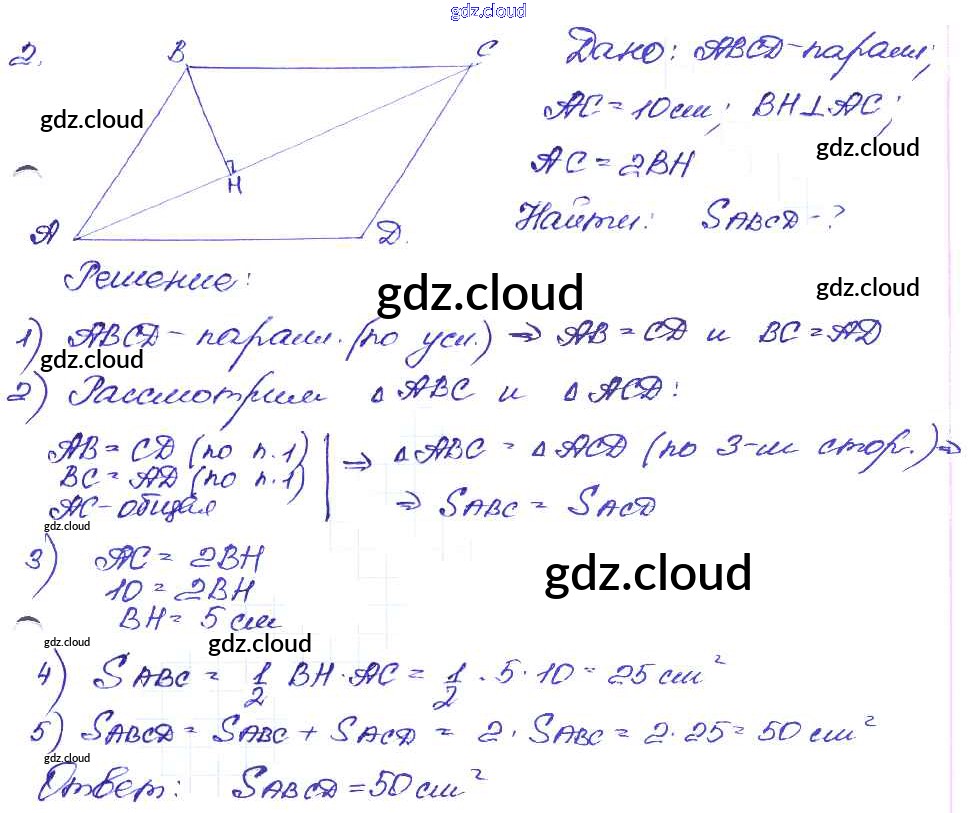 gdz.cloud
2.
B
C
Дано: ABCD - паралл;
gdz.cloud
AC = 10 см; BH⊥AC;
gdz.cloud
AC = 2BH
H
Найти: SABCD - ?
A
D.
Решение:
gdz.cloud
gdz.cloud
1) ABCD - паралл. (по усл.) ⇒ AB = CD и BC = AD
gdz.cloud
2) Рассмотрим △ABC и △ACD:
AB = CD (по п.1)
BC = AD (по п.1)
AC - общая
⇒ △ABC = △ACD (по 3-м стор.) ⇒
⇒ SABC = SACD
gdz.cloud
3) AC = 2BH
10 = 2BH
BH = 5 см
gdz.cloud
gdz.cloud
gdz.cloud
4) SABC = 1/2 BH · AC = 1/2 · 5 · 10 = 25 см²
5) SABCD = SABC + SACD = 2 · SABC = 2 · 25 = 50 см²
gdz.cloud
Ответ: SABCD = 50 см²